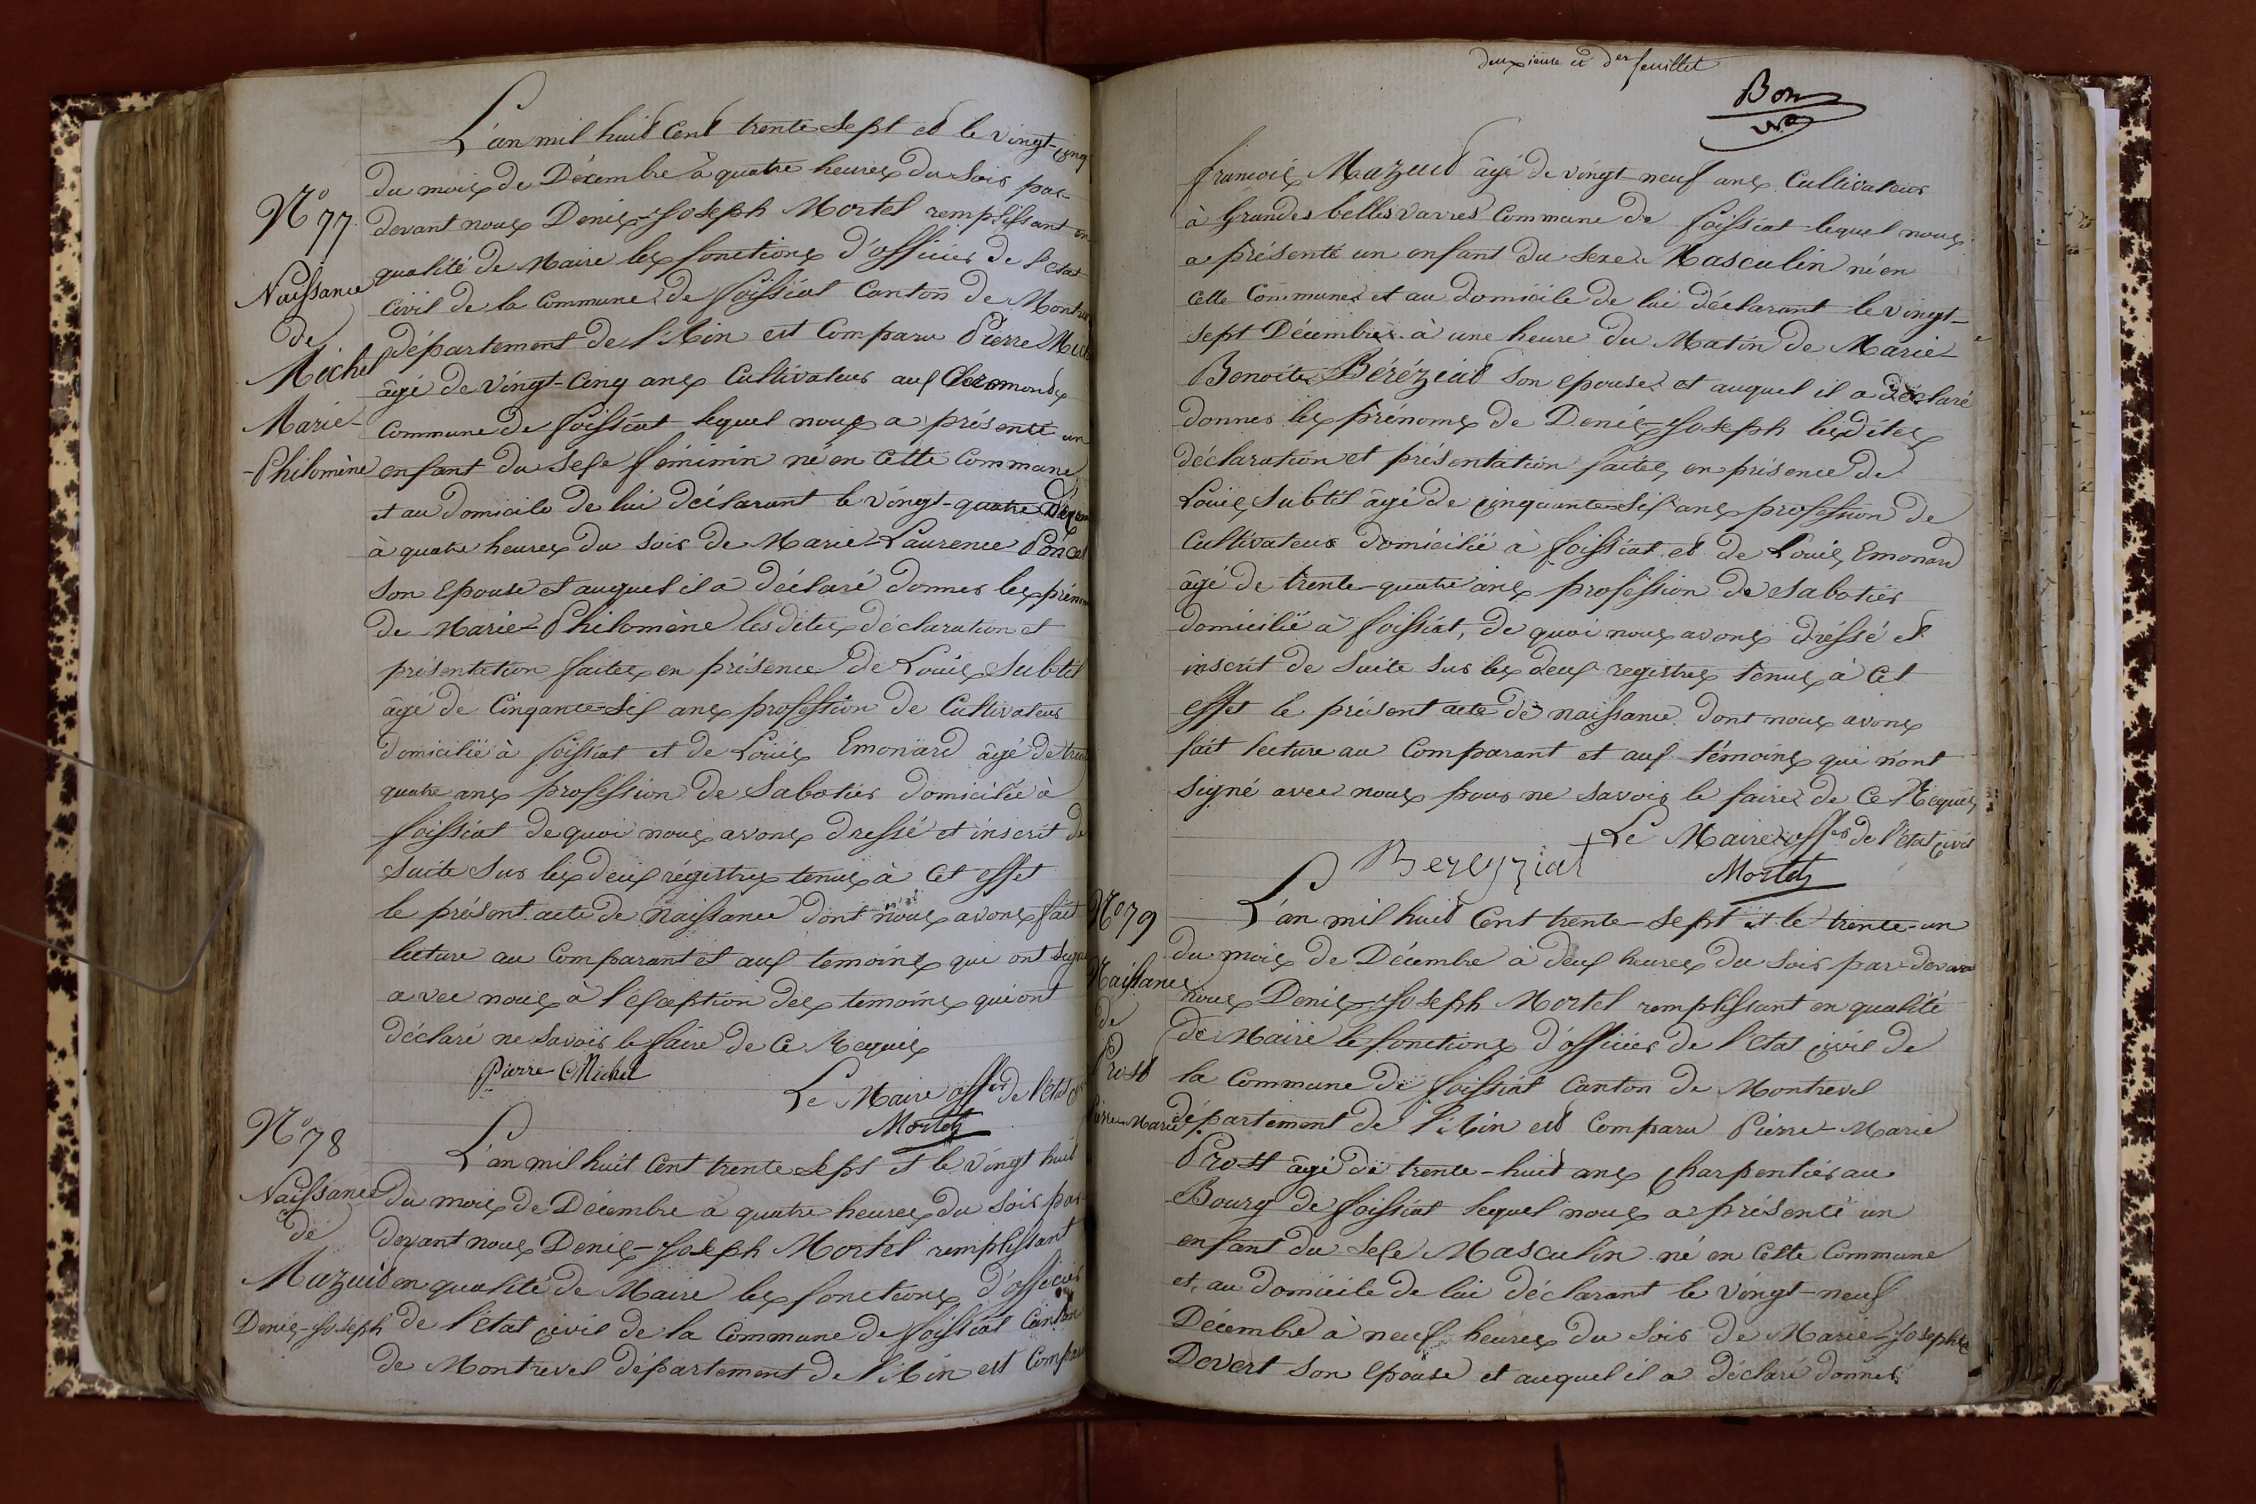 L'an mil huit Cent trente Sept et le vingt-cinq
du mois de Décembre à quatre heures du Soir par-
N° 77.
devant nous Denis-Joseph Mortel remplissant en
qualité de Maire les fonctions d'officier de l'etat
Naissance
civil de la Commune de foissiat Canton de Montre
de
département de l'Ain est Comparu Pierre Mic
Michel
âgé de vingt-Cinq ans Cultivateur aux Cleremonds
Marie-
Commune de foissiat lequel nous a présenté un
-Philomène
enfant du Sexe féminin né en Cette Commune
et au domicile de lui déclarant le vingt-quatre Décem
à quatre heures du soir de Marie-Laurence Poncet
son Epouse et auquel il a déclaré donner les prénom
de Marie-Philomène lesdites déclaration et
présentation faites en présence de Louis Subtil
âgé de Cinqante-Six ans profession de Cultivateur
domicilié à foissiat et de Louis Emonard âgé de tren
quatre ans profession de Sabotier domicilié à
foissiat de quoi nous avons dressé et inscrit de
suite sur les deux régistres tenus à Cet effet
le présent acte de Naissance dont nous avons fait
lecture au Comparant et aux temoins qui ont signé
avec nous à l'exception des temoins qui ont
déclaré ne savoir le faire de Ce Requis
Pierre Michel
Le Maire offer de l'Etat
Mortel
N° 78
L'an mil huit Cent trente Sept et le vingt huit
Naissance
du mois de Décembre à quatre heures du soir par-
de
devant nous Denis-Joseph Mortel remplissant
Mazuit
en qualité de Maire les fonctions d'officier
Denis-Joseph
de l'Etat civil de la Commune de foissiat Canton
de Montrevel département de l'Ain est Compar
deuxième et der feuillet
Bon
francois Mazuit âgé de vingt-neuf ans Cultivateur
à Grandes bellesvavres Commune de foissiat lequel nous
a présenté un enfant du sexe Masculin né en
Cette Commune et au domicile de lui déclarant le vingt-
sept Décembre à une heure du Matin de Marie-
Benoite Béréziat son epouse et auquel il a déclaré
donner les prénoms de Denis-Joseph lesdites
déclaration et présentation faites en présence de
Louis Subtil âgé de cinquante-Six ans profession de
Cultivateur domicilié à foissiat et de Louis Emonard
âgé de trente-quatre ans profession de Sabotier
domicilié à foissiat, de quoi nous avons dréssé et
inscrit de suite sur les deux registres tenus à Cet
effet le présent acte de naissance dont nous avons
fait lecture au Comparant et aux témoins qui n'ont
Signé avec nous pour ne savoir le faire de Ce Requis
Le Maire offer de l'état civil
Bereyziat
Mortel
N° 79
L'an mil huit Cent trente-Sept et le trente-un
du mois de Décembre à deux heures du Soir par-devant
Naissance
nous Denis-Joseph Mortel remplissant en qualité
de
de Maire le fonctions d'officier de l'Etat civil de
Prost
la Commune de foissiat Canton de Montrevel
Pierre-Marie
département de l'Ain est Comparu Pierre-Marie
Prost âgé de trente-huit ans Charpentier au
Bourg de foissiat lequel nous a présenté un
enfant du Sexe Masculin né en Cette Commune
et, au domicile de lui déclarant le vingt-neuf
Décembre à neuf heures du Soir de Marie-Josephe
Devert son Epouse et auquel il a déclaré donner